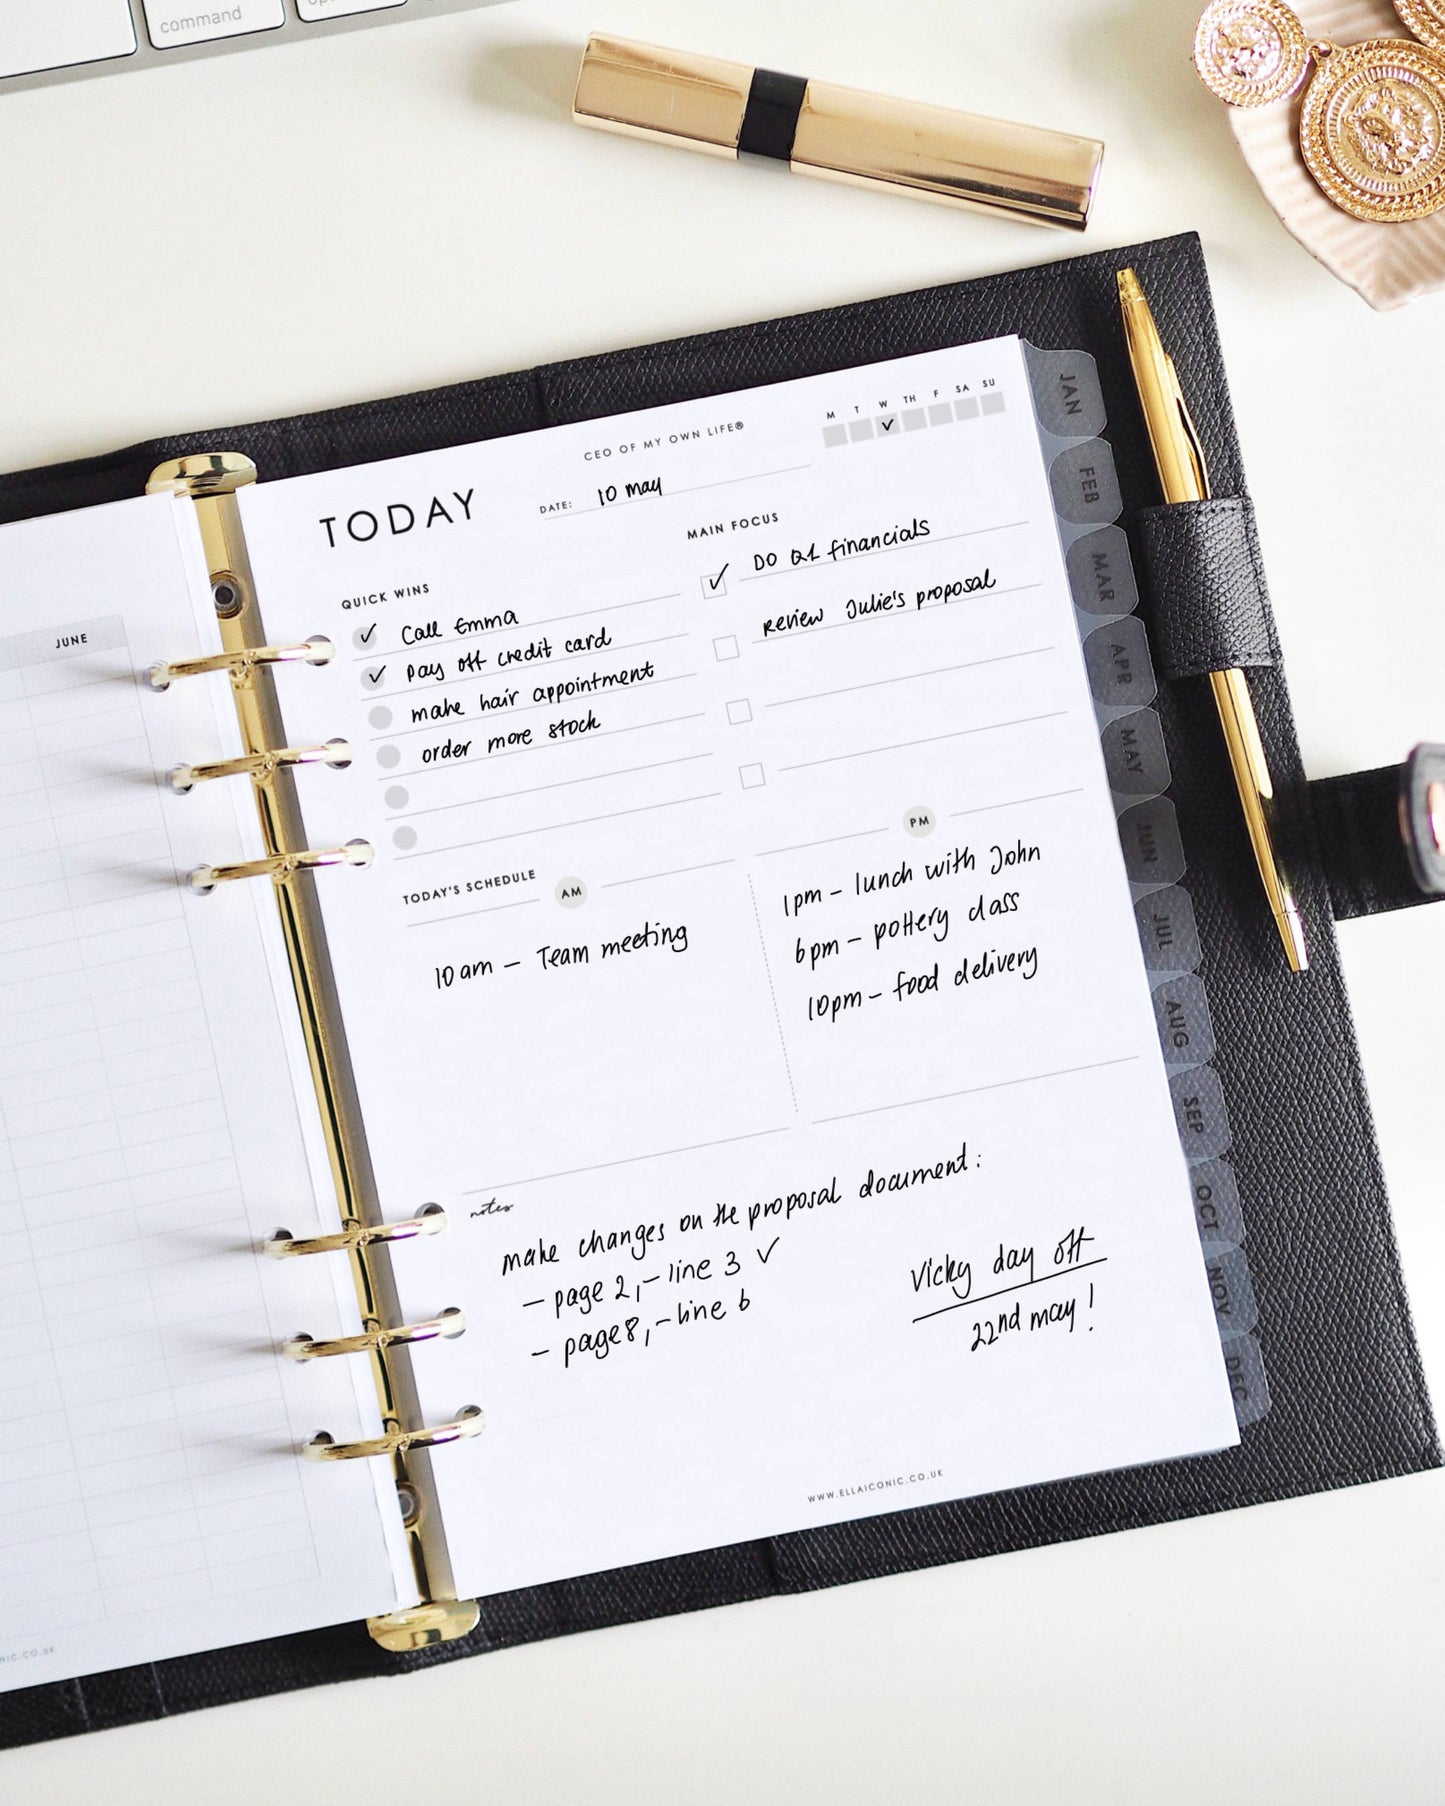 command
CEO OF MY OWN LIFE®
M T W TH F SA SU
✓
TODAY
DATE: 10 may
QUICK WINS
✓ Call Emma
✓ Pay off credit card
make hair appointment
order more stock
MAIN FOCUS
✓ DO Q1 financials
review Julie's proposal
TODAY'S SCHEDULE
AM
10am – Team meeting
PM
1pm – lunch with John
6pm – pottery class
10pm – food delivery
notes
make changes on the proposal document:
– page 2,– line 3 ✓
– page 8,– line 6
Vicky day off
22nd may!
WWW.ELLAICONIC.CO.UK
JAN
FEB
MAR
APR
MAY
JUN
JUL
AUG
SEP
OCT
NOV
DEC
JUNE
NIC.CO.UK